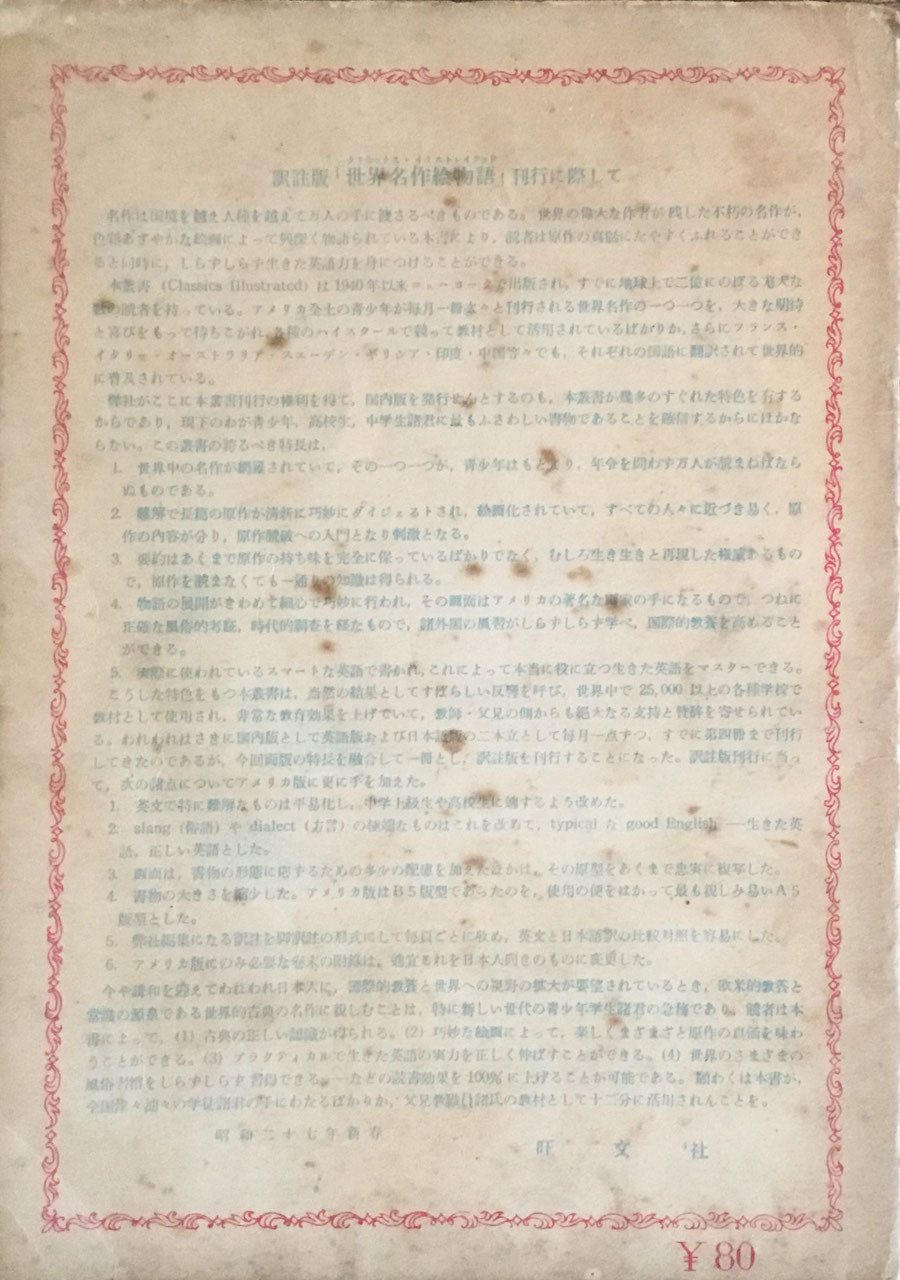 クラシックス・イラストレイテッド
訳註版「世界名作絵物語」刊行に際して
名作は国境を越え人種を越えて万人の手に渡さるべきものである。世界の偉大な作者が残した不朽の名作が,
色彩あざやかな絵画によって興深く物語られている本書により,読者は原作の真髄にたやすくふれることができ
ると同時に,しらずしらず生きた英語力を身につけることができる。
本叢書 (Classics Illustrated) は1940年以来ニューヨークで出版され,すでに地球上で二億にのぼる尨大な
数の読者を持っている。アメリカ全土の青少年が毎月一冊次々と刊行される世界名作の一つ一つを,大きな期待
と喜びをもって待ちこがれ,各種のハイスクールで競って教材として活用されているばかりか,さらにフランス・
イタリヤ・オーストラリア・スエーデン・ギリシア・印度・中国等々でも,それぞれの国語に翻訳されて世界的
に普及されている。
弊社がここに本叢書刊行の権利を得て,国内版を発行せんとするのも,本叢書が幾多のすぐれた特色を有する
からであり,現下のわが青少年,高校生,中学生諸君に最もふさわしい書物であることを確信するからにほかな
らない。この叢書の誇るべき特長は,
1. 世界中の名作が網羅されていて,その一つ一つが,青少年はもとより,年令を問わず万人が読まねばなら
ぬものである。
2. 難解で長篇の原作が清新に巧妙にダイジェストされ,絵画化されていて,すべての人々に近づき易く,原
作の内容が分り,原作読破への入門となり刺激となる。
3. 要約はあくまで原作の持ち味を完全に保っているばかりでなく,むしろ生き生きと再現した権威あるもの
で,原作を読まなくても一通りの知識は得られる。
4. 物語の展開がきわめて細心で巧妙に行われ,その画面はアメリカの著名な画家の手になるもので,つねに
正確な風俗的考証,時代的調査を経たもので,諸外国の風習がしらずしらず学べ,国際的教養を高めること
ができる。
5. 実際に使われているスマートな英語で書かれ,これによって本当に役に立つ生きた英語をマスターできる。
こうした特色をもつ本叢書は,当然の結果としてすばらしい反響を呼び,世界中で 25,000 以上の各種学校で
教材として使用され,非常な教育効果を上げでいて,教師・父兄の側からも絶大なる支持と賛辞を寄せられてい
る。われわれはさきに国内版として英語版および日本語版の二本立として毎月一点ずつ,すでに第四冊まで刊行
してきたのであるが,今回両版の特長を融合して一冊とし,訳註版を刊行することになった。訳註版刊行に当っ
て,次の諸点についてアメリカ版に更に手を加えた。
1. 英文で特に難解なものは平易化し,中学上級生や高校生に適するよう改めた。
2. slang (俗語) や dialect (方言) の極端なものはこれを改めて,typical な good English ―生きた英
語,正しい英語とした。
3. 画面は,書物の形態に応ずるための多少の配慮を加えたほかは,その原型をあくまで忠実に複写した。
4. 書物の大きさを縮少した。アメリカ版はB5版型であったのを,使用の便をはかって最も親しみ易いA5
版型とした。
5. 弊社編集になる訳註を脚訳註の形式にして毎頁ごとに収め,英文と日本語訳の比較対照を容易にした。
6. アメリカ版にのみ必要な巻末の附録は,適宜これを日本人向きのものに変更した。
今や講和を迎えてわれわれ日本人に,国際的教養と世界への視野の拡大が要望されているとき,欧米的教養と
常識の源泉である世界的古典の名作に親しむことは,特に新しい世代の青少年学生諸君の急務であり,読者は本
書によって,(1) 古典の正しい認識が得られる。(2) 巧妙な絵画によって,楽しくまざまざと原作の真価を味わ
うことができる。(3) プラクティカルで生きた英語の実力を正しく伸ばすことができる。(4) 世界のさまざまの
風俗習慣をしらずしらず習得できる。―などの読書効果を 100% に上げることが可能である。願わくは本書が,
全国津々浦々の学徒諸君の手にわたるばかりか,父兄教職員諸氏の教材として十二分に活用されんことを。
昭和二十七年新春
旺文社
￥80